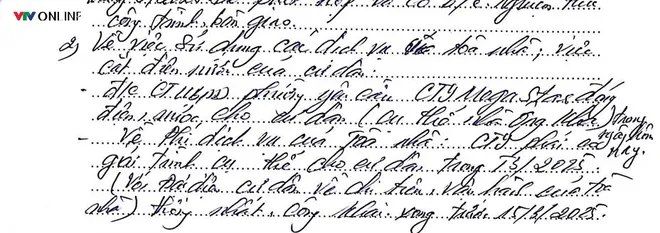 VTV ONLINE
công trình, bàn giao.
2) Về việc sử dụng các dịch vụ toà nhà, việc
cắt điện nước của cư dân:
- đ/c CT UBND phường yêu cầu CTY Mega Stas đóng
điện, nước cho cư dân (cụ thể nhà ông trong
ngày hôm nay.
- Về Phí dịch vụ của Toà nhà: CTY phải
giải trình cụ thể cho cư dân trong T3/2025.
(Với đại diện cư dân về chi tiền, vận hành của toà
nhà) thống nhất, công khai xong trước 15/3/2025.